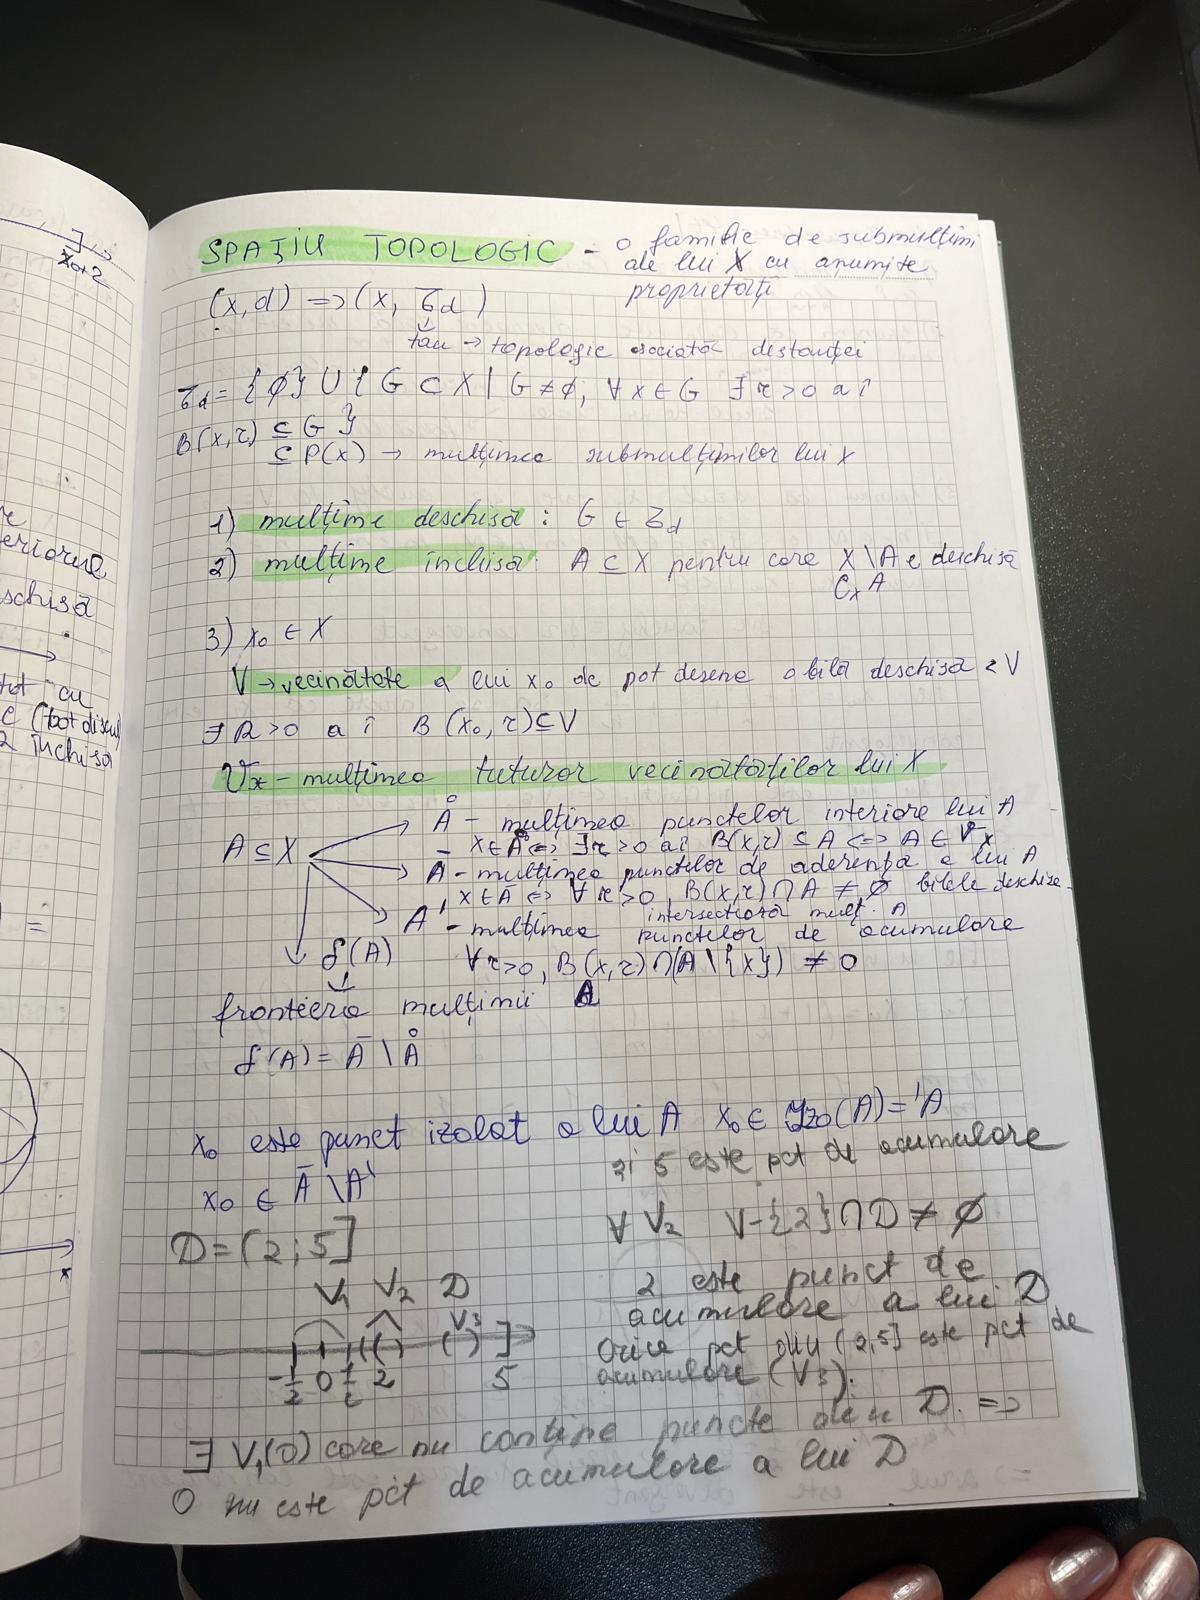 x₀+2
SPAȚIU TOPOLOGIC - o familie de submulțimi
ale lui X cu anumite
proprietăți
(x, d) => (x, τd)
tău → topologie asociată distanței
τd = {∅} ∪ {G ⊂ X | G ≠ ∅, ∀ x ∈ G ∃ r > 0 a î
B(x, r) ⊆ G}
⊆ P(x) → mulțimea submulțimilor lui X
1) mulțime deschisă : G ∈ τd
2) mulțime închisă : A ⊆ X pentru care X \ A e deschisă
Cx A
3) x₀ ∈ X
V → vecinătate a lui x₀ de pot desena o bilă deschisă
∃ R > 0 a î B(x₀, r) ⊆ V
Vx - mulțimea tuturor vecinătăților lui X
A ⊆ X
Å - mulțimea punctelor interiore lui A
- x ∈ Å <=> ∃ r > 0 aî B(x, r) ⊆ A <=> A ∈ Vx
Ā - mulțimea punctelor de aderență a lui A
x ∈ Ā <=> ∀ r > 0, B(x, r) ∩ A ≠ ∅ bilele deschise
intersectează mulț. A
A' - mulțimea punctelor de acumulare
∀ r > 0, B(x, r) ∩ (A \ {x}) ≠ 0
f(A)
frontiera mulțimii A
f(A) = Ā \ Å
x₀ este punct izolat a lui A x₀ ∈ Izo(A) = 'A
x₀ ∈ Ā \ A'
și 5 este pct de acumulare
D = (2; 5]
∀ V₂ V-{2} ∩ D ≠ ∅
2 este punct de
acumulare a lui D
V₁ V₂ D
V₃
-1/2 0 1/2 2 5
Orice pct din (2,5] este pct de
acumulare (V₃).
∃ V₁(0) care nu conține puncte ale D. =>
0 nu este pct de acumulare a lui D
eriorul
schisă
cu
(tot discul)
2 închisă
=
x